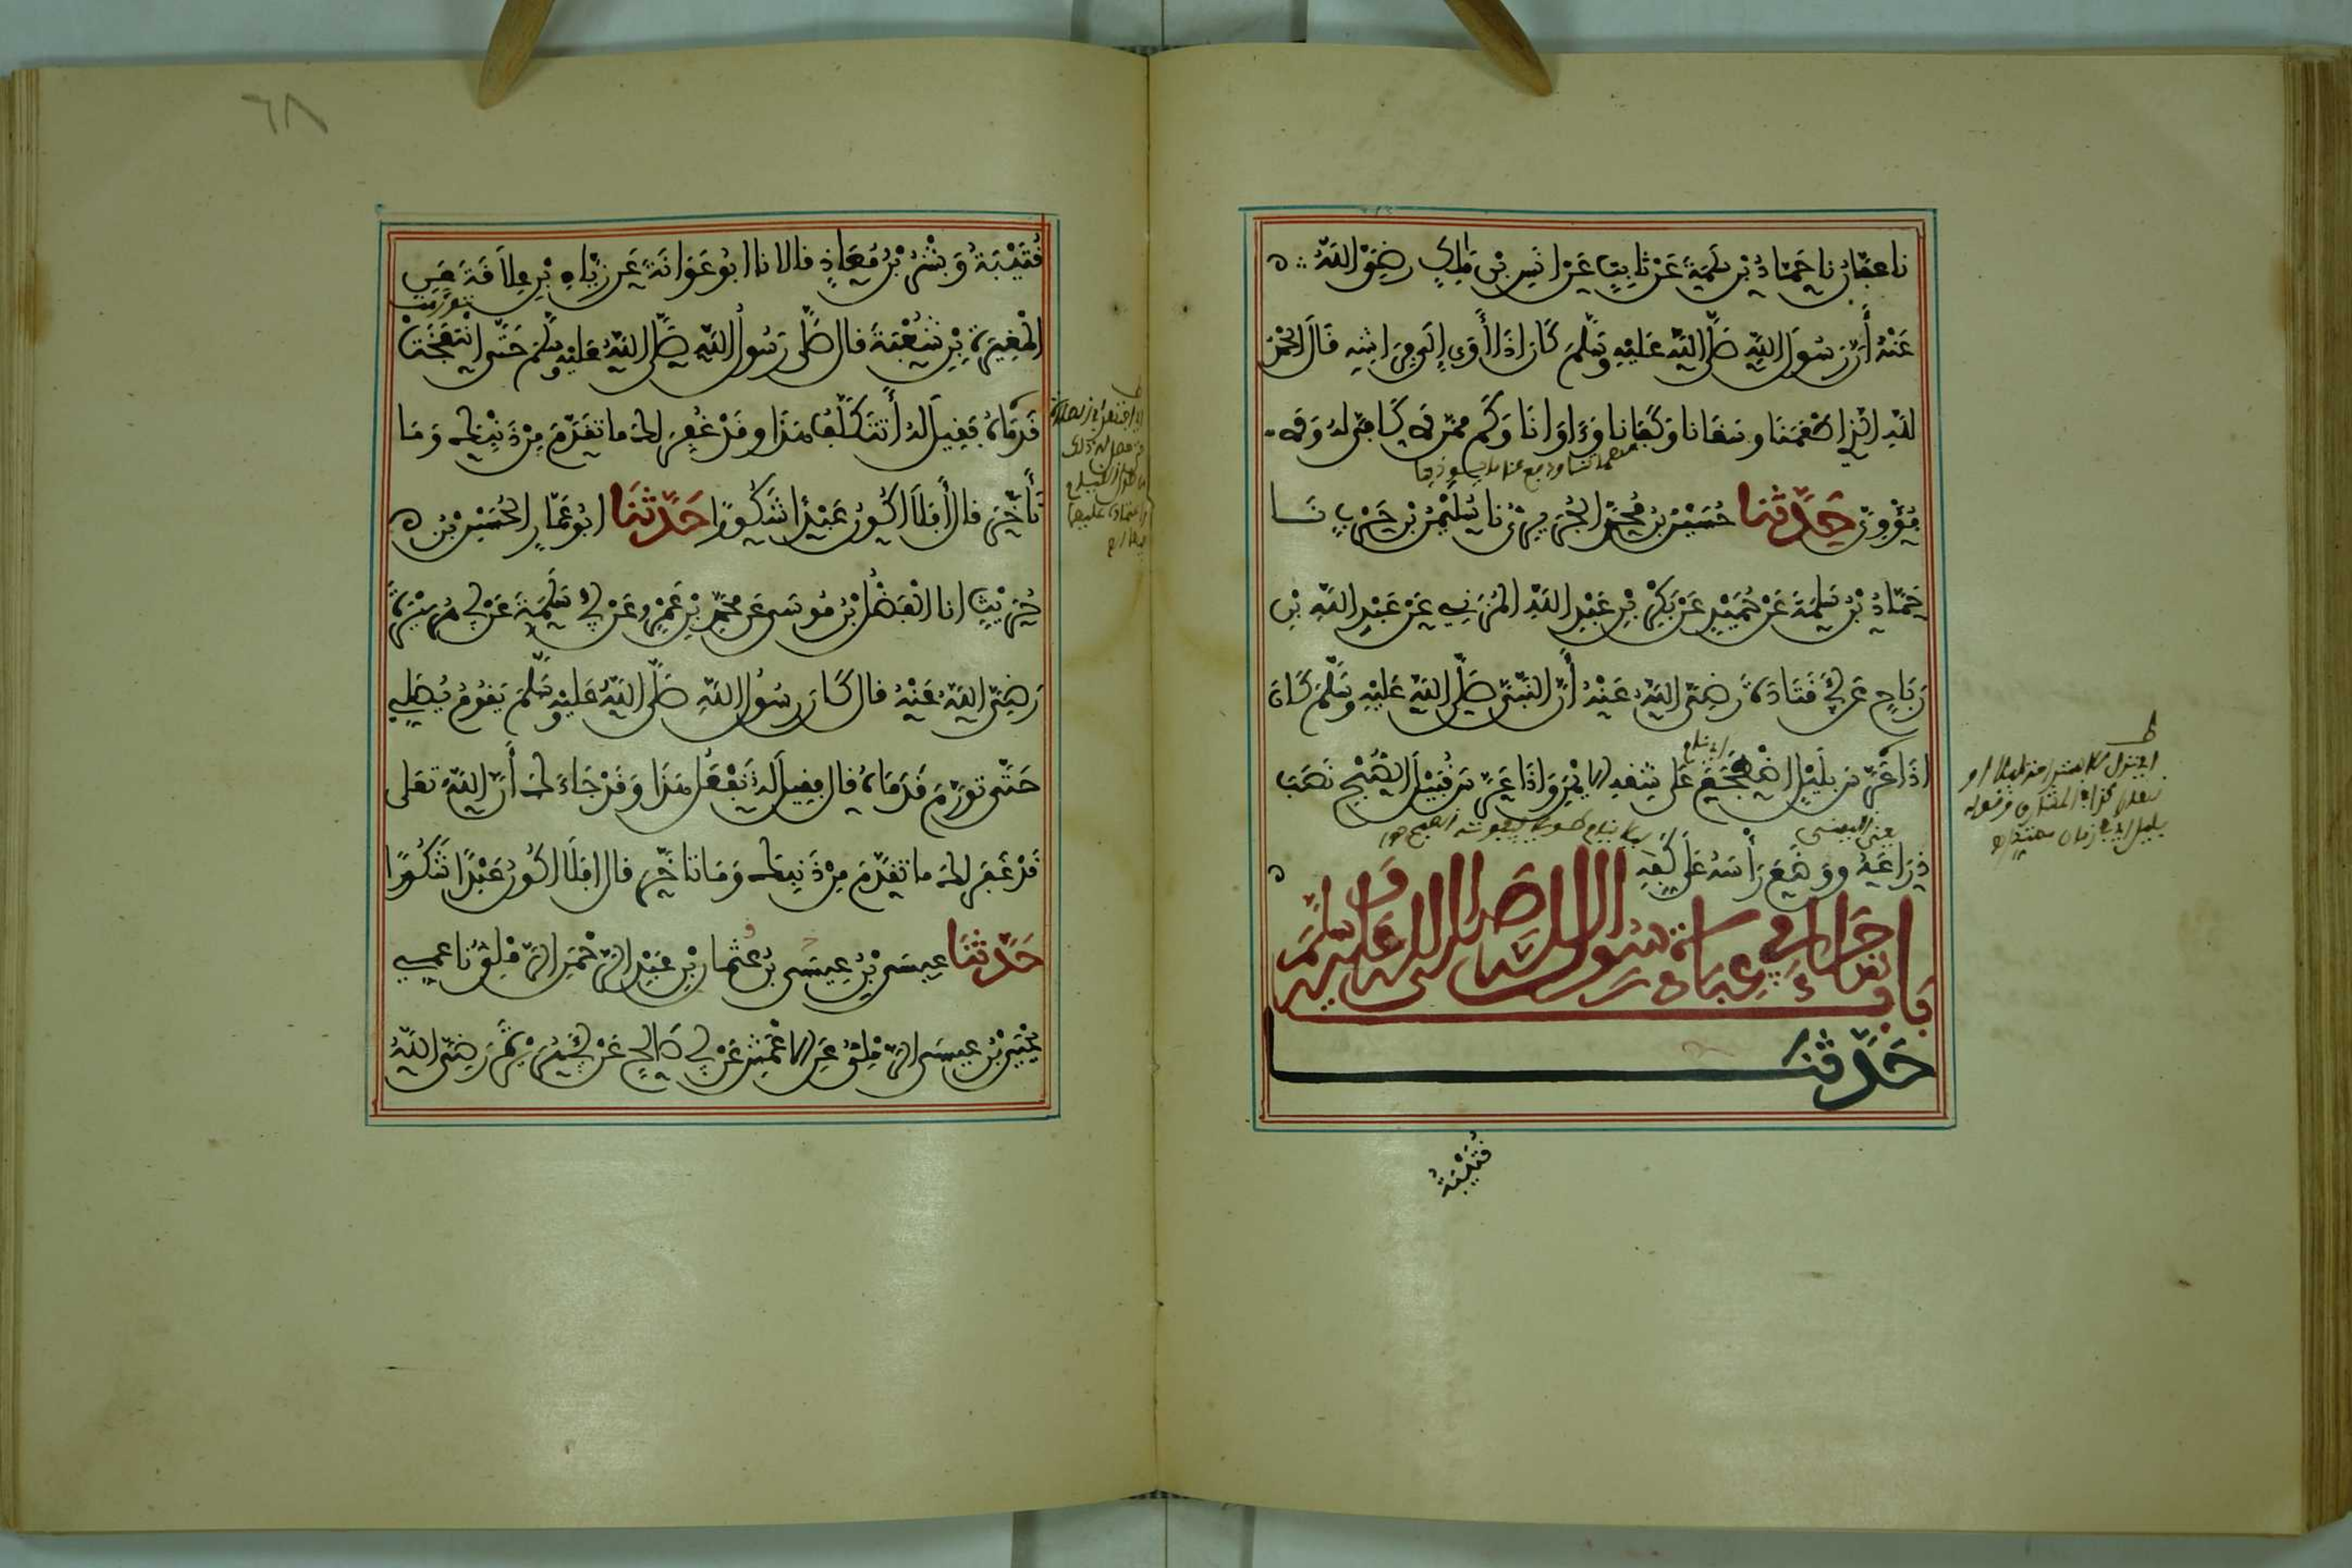 نا عفان نا حَمّادُ بْن سَلمَةَ عَنْ ثابِتٍ عَنْ انَسِ بْنِ مَلِكٍ رضِيَ اللَّهُ
عَنْهُ أَنّ رَسُولَ اللَّهِ صَلَّى اللَّهُ عَلَيْهِ وَسَلَّمَ كَانَ اذَا أَوَى إِلَى فِرَاشِهِ قَالَ الحْمْدُ
لِلَّهِ الَّذِي اطْعَمَنَا وسَقَانا وَكَفَانا وَءَاوَانَا وَكَمْ مِمَّن لَا كَافِيَ لَهُ وَلَا
مُؤْوِيَ حَدَّثَنَا حُسَيْنُ بْنُ مُحَمَّدٍ الجُرَيْرِيُّ نا سُلَيْمَنُ بْنُ حَرْبٍ نَا
حَمَّادُ بْنُ سَلَمَةَ عَنْ حُمَيْدٍ عَنْ بَكْرِ بْنِ عَبْدِ اللَّهِ المُزَنِي عَنْ عَبْدِ اللَّهِ بْنِ
رَبَاحٍ عَن أَبِي قَتَادَةَ رَضِيَ اللَّهُ عَنْهُ أَنَّ النَّبِيَّ صَلَّى اللَّهُ عَلَيْهِ وَسَلَّمَ كَانَ
اذَا عَرَّسَ بِلَيْلٍ اضْطَجَعَ عَلَى شِقِّهِ الايْمَنِ وَاذَا عَرَّسَ قُبَيْلَ الصُّبْحِ نَصَبَ
ذِرَاعَهُ وَوَضَعَ رَأْسَهُ عَلَى كَفِّهِ
بَابُ مَا جَاءَ فِي عِبَادَةِ رَسُولِ اللَّهِ صَلَّى اللَّهُ عَلَيْهِ وَسَلَّمَ
حَدَّثَنَا
قُتَيْبَةُ
٦٨
قُتَيْبَةُ وَبِشْرُ بْنُ مُعَاذٍ قالا نا ابُو عَوَانَةَ عَن زِيَادِ بْنِ عِلَاقَةَ عَنِ
الْمُغِيرَةِ بْنِ شُعْبَةَ قال صَلَّى رَسُولُ اللَّهِ صَلَّى اللَّهُ عَلَيْهِ وَسَلَّمَ حَتَّى انْتَفَخَتْ
قَدَمَاهُ فَقِيلَ لَهُ أَتَتَكَلَّفُ هَذَا وقَدْ غُفِرَ لَكَ ما تَقَدَّمَ مِنْ ذَنْبِكَ وَمَا
تَأَخَّرَ قالَ أَفَلَا اكُونُ عَبْدًا شَكُورًا حَدَّثَنَا ابُو عَمَّارٍ الحُسَيْنُ بْنُ
حُرَيْثٍ انا الْفَضْلُ بْنُ مُوسَى عَن مُحَمَّدِ بْنِ عَمْرٍو عَنْ أَبِي سَلَمَةَ عَنْ أَبِي هُرَيْرَةَ
رَضِيَ اللَّهُ عَنْهُ قال كَانَ رَسُولُ اللَّهِ صَلَّى اللَّهُ عَلَيْهِ وَسَلَّمَ يَقُومُ يُصَلِّي
حَتَّى تَوَرَّمَ قَدَمَاهُ قال فقِيلَ لَهُ تَفْعَلُ هَذَا وَقَدْ جَاءَكَ أَنَّ اللَّهَ تَعَلى
قَدْ غَفَرَ لَكَ ما تَقَدَّمَ مِنْ ذَنبِكَ وَمَا تَاخَّرَ قال افَلَا اكُونُ عَبْدًا شَكُورًا
حَدَّثَنَا عِيسَى بْنُ عِيسَى بْنُ عُثْمانَ بْنِ عَبْدِ الرَّحْمَنِ الرَّمْلِيُّ نا عمي
يَحْيَى بْنُ عِيسَى الرَّمْلِيُّ عَنِ الاعْمَشِ عَنْ أَبِي صَالِحٍ عَنْ أَبِي هُرَيْرَةَ رَضِيَ اللَّهُ